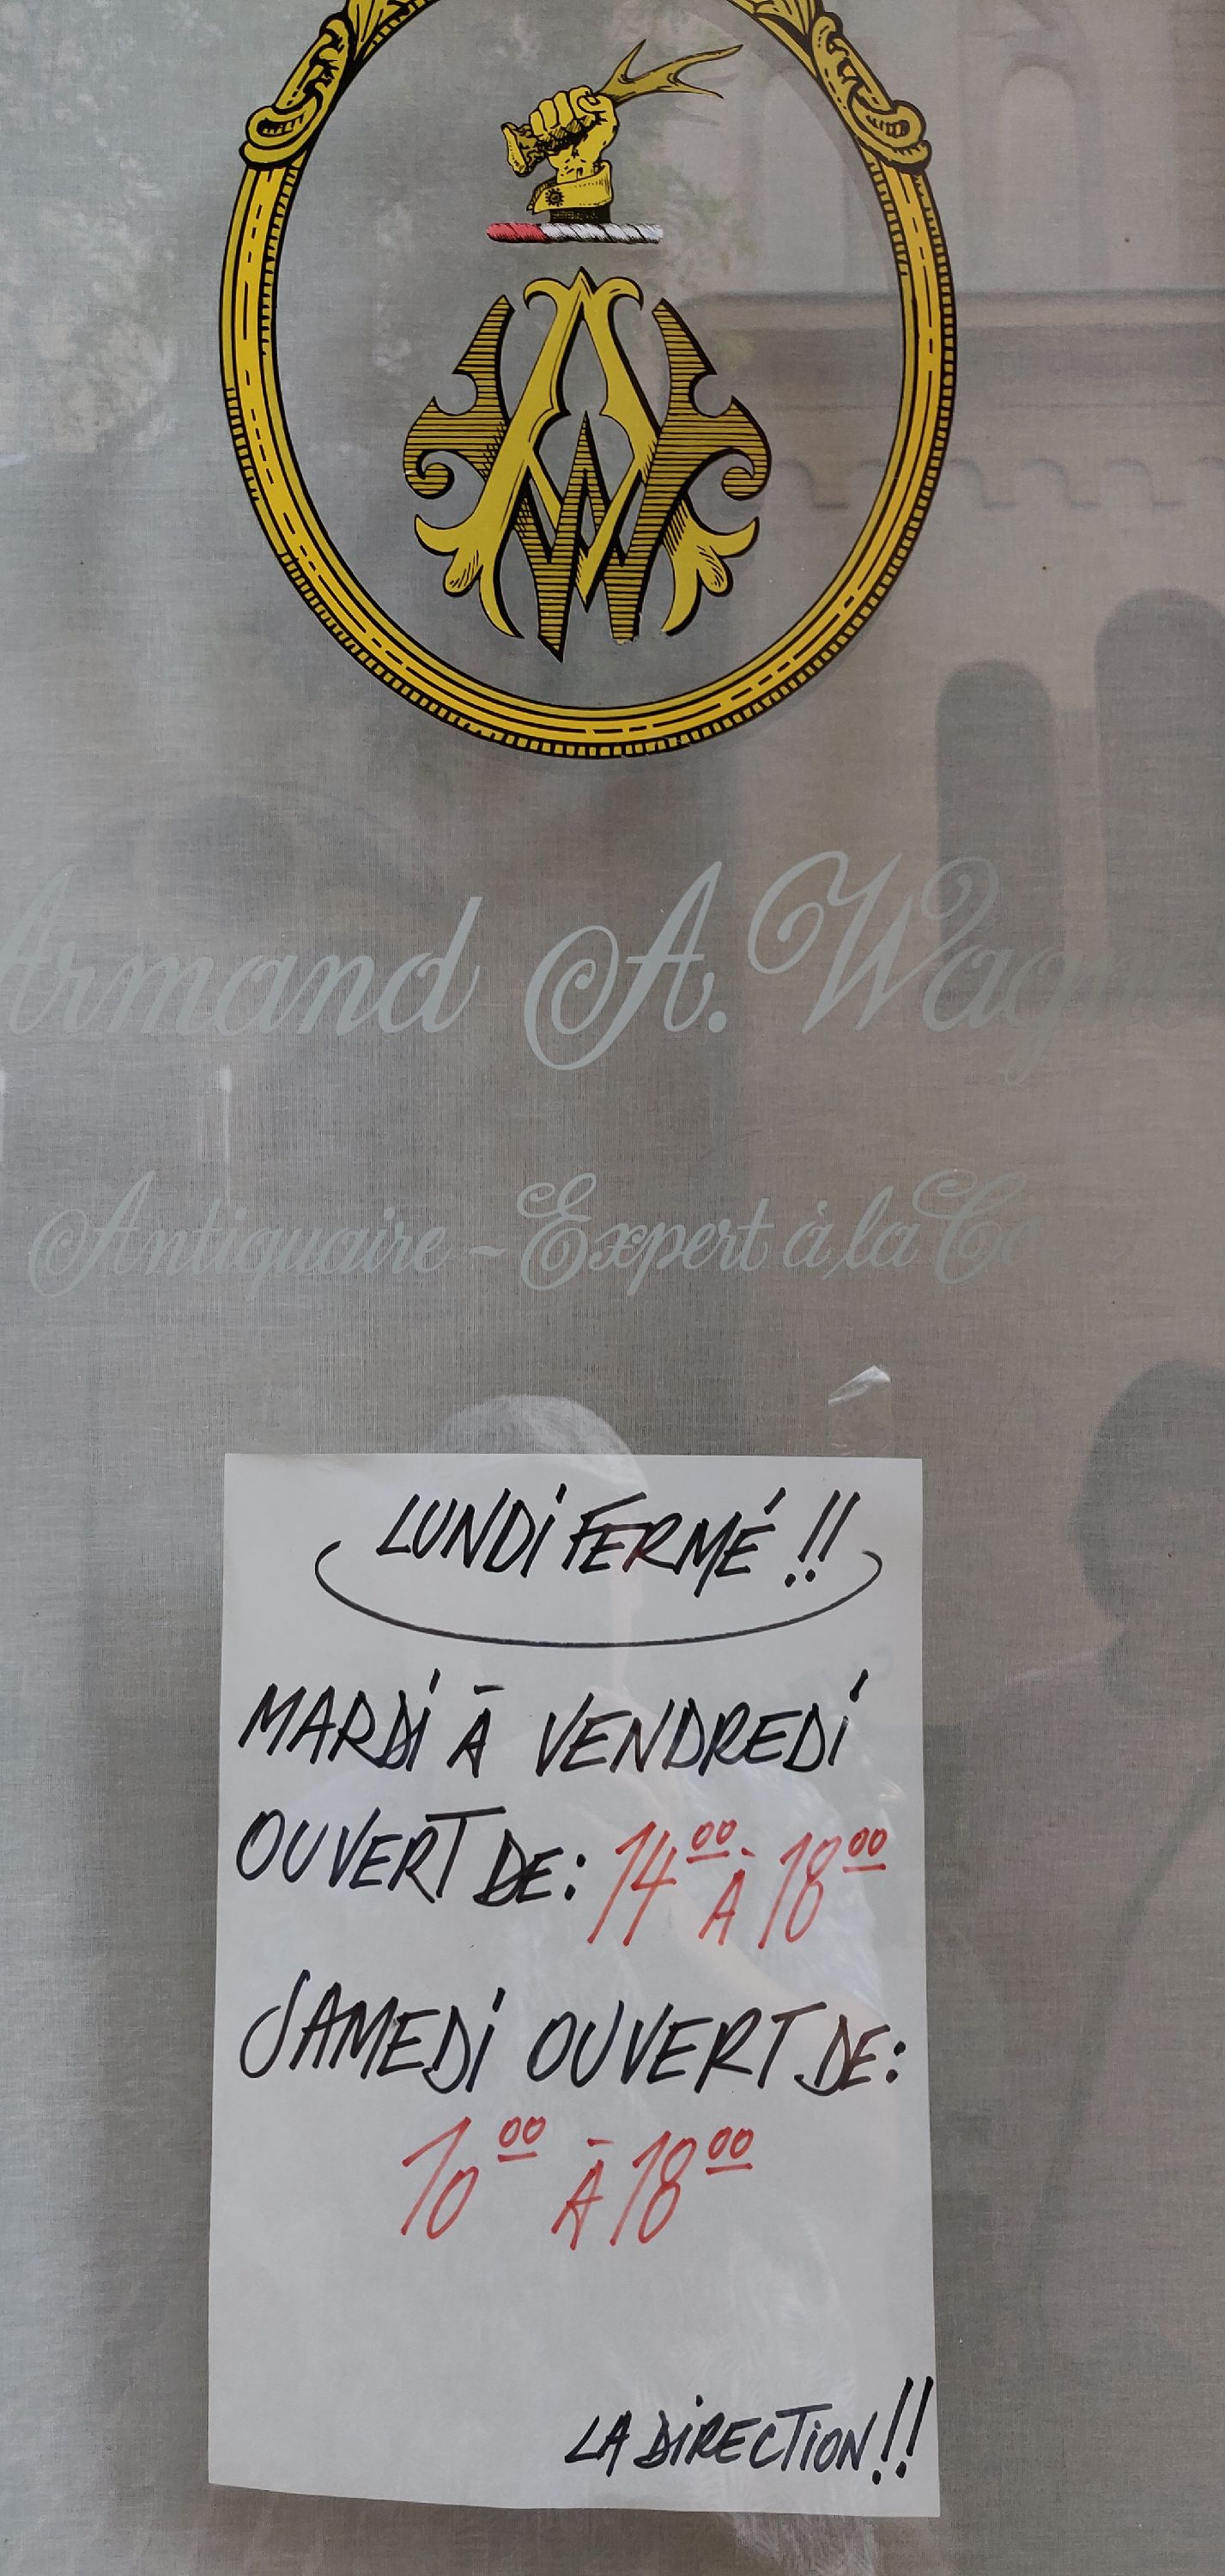 AW
Armand A.
Antiquaire ~ Expert à la
LUNDI FERMÉ !!
MARDI À VENDREDI
OUVERT DE: 14⁰⁰ À 18⁰⁰
SAMEDI OUVERT DE:
10⁰⁰ À 18⁰⁰
LA DIRECTION!!